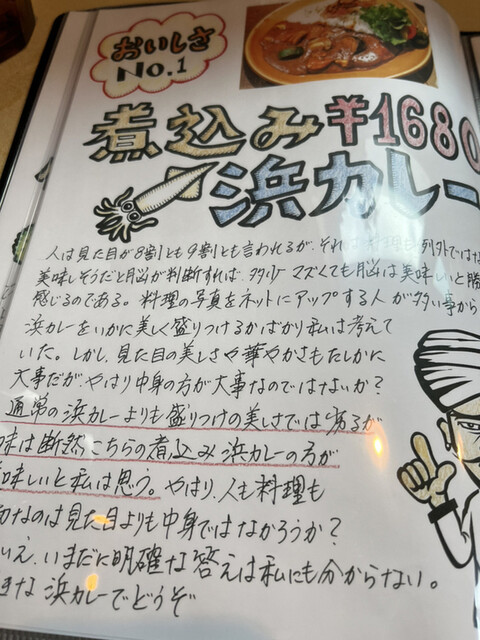 おいしさ
No.1
煮込み¥1680
浜カレー
人は見た目が8割とも9割とも言われるが、それは料理も例外ではな
美味しそうだと脳が判断すれば、多少マズくても脳は美味しいと勝
感じるのである。料理の写真をネットにアップする人が多い事から
浜カレーをいかに美しく盛りつけるかばかり私は考えて
いた。しかし、見た目の美しさや華やかさもたしかに
大事だが、やはり中身の方が大事なのではないか?
通常の浜カレーよりも盛りつけの美しさでは劣るが
味は断然こちらの煮込み浜カレーの方が
美味しいと私は思う。やはり、人も料理も
なのは見た目よりも中身ではなかろうか?
いえ、いまだに明確な答えは私にも分からない。
きな浜カレーでどうぞ